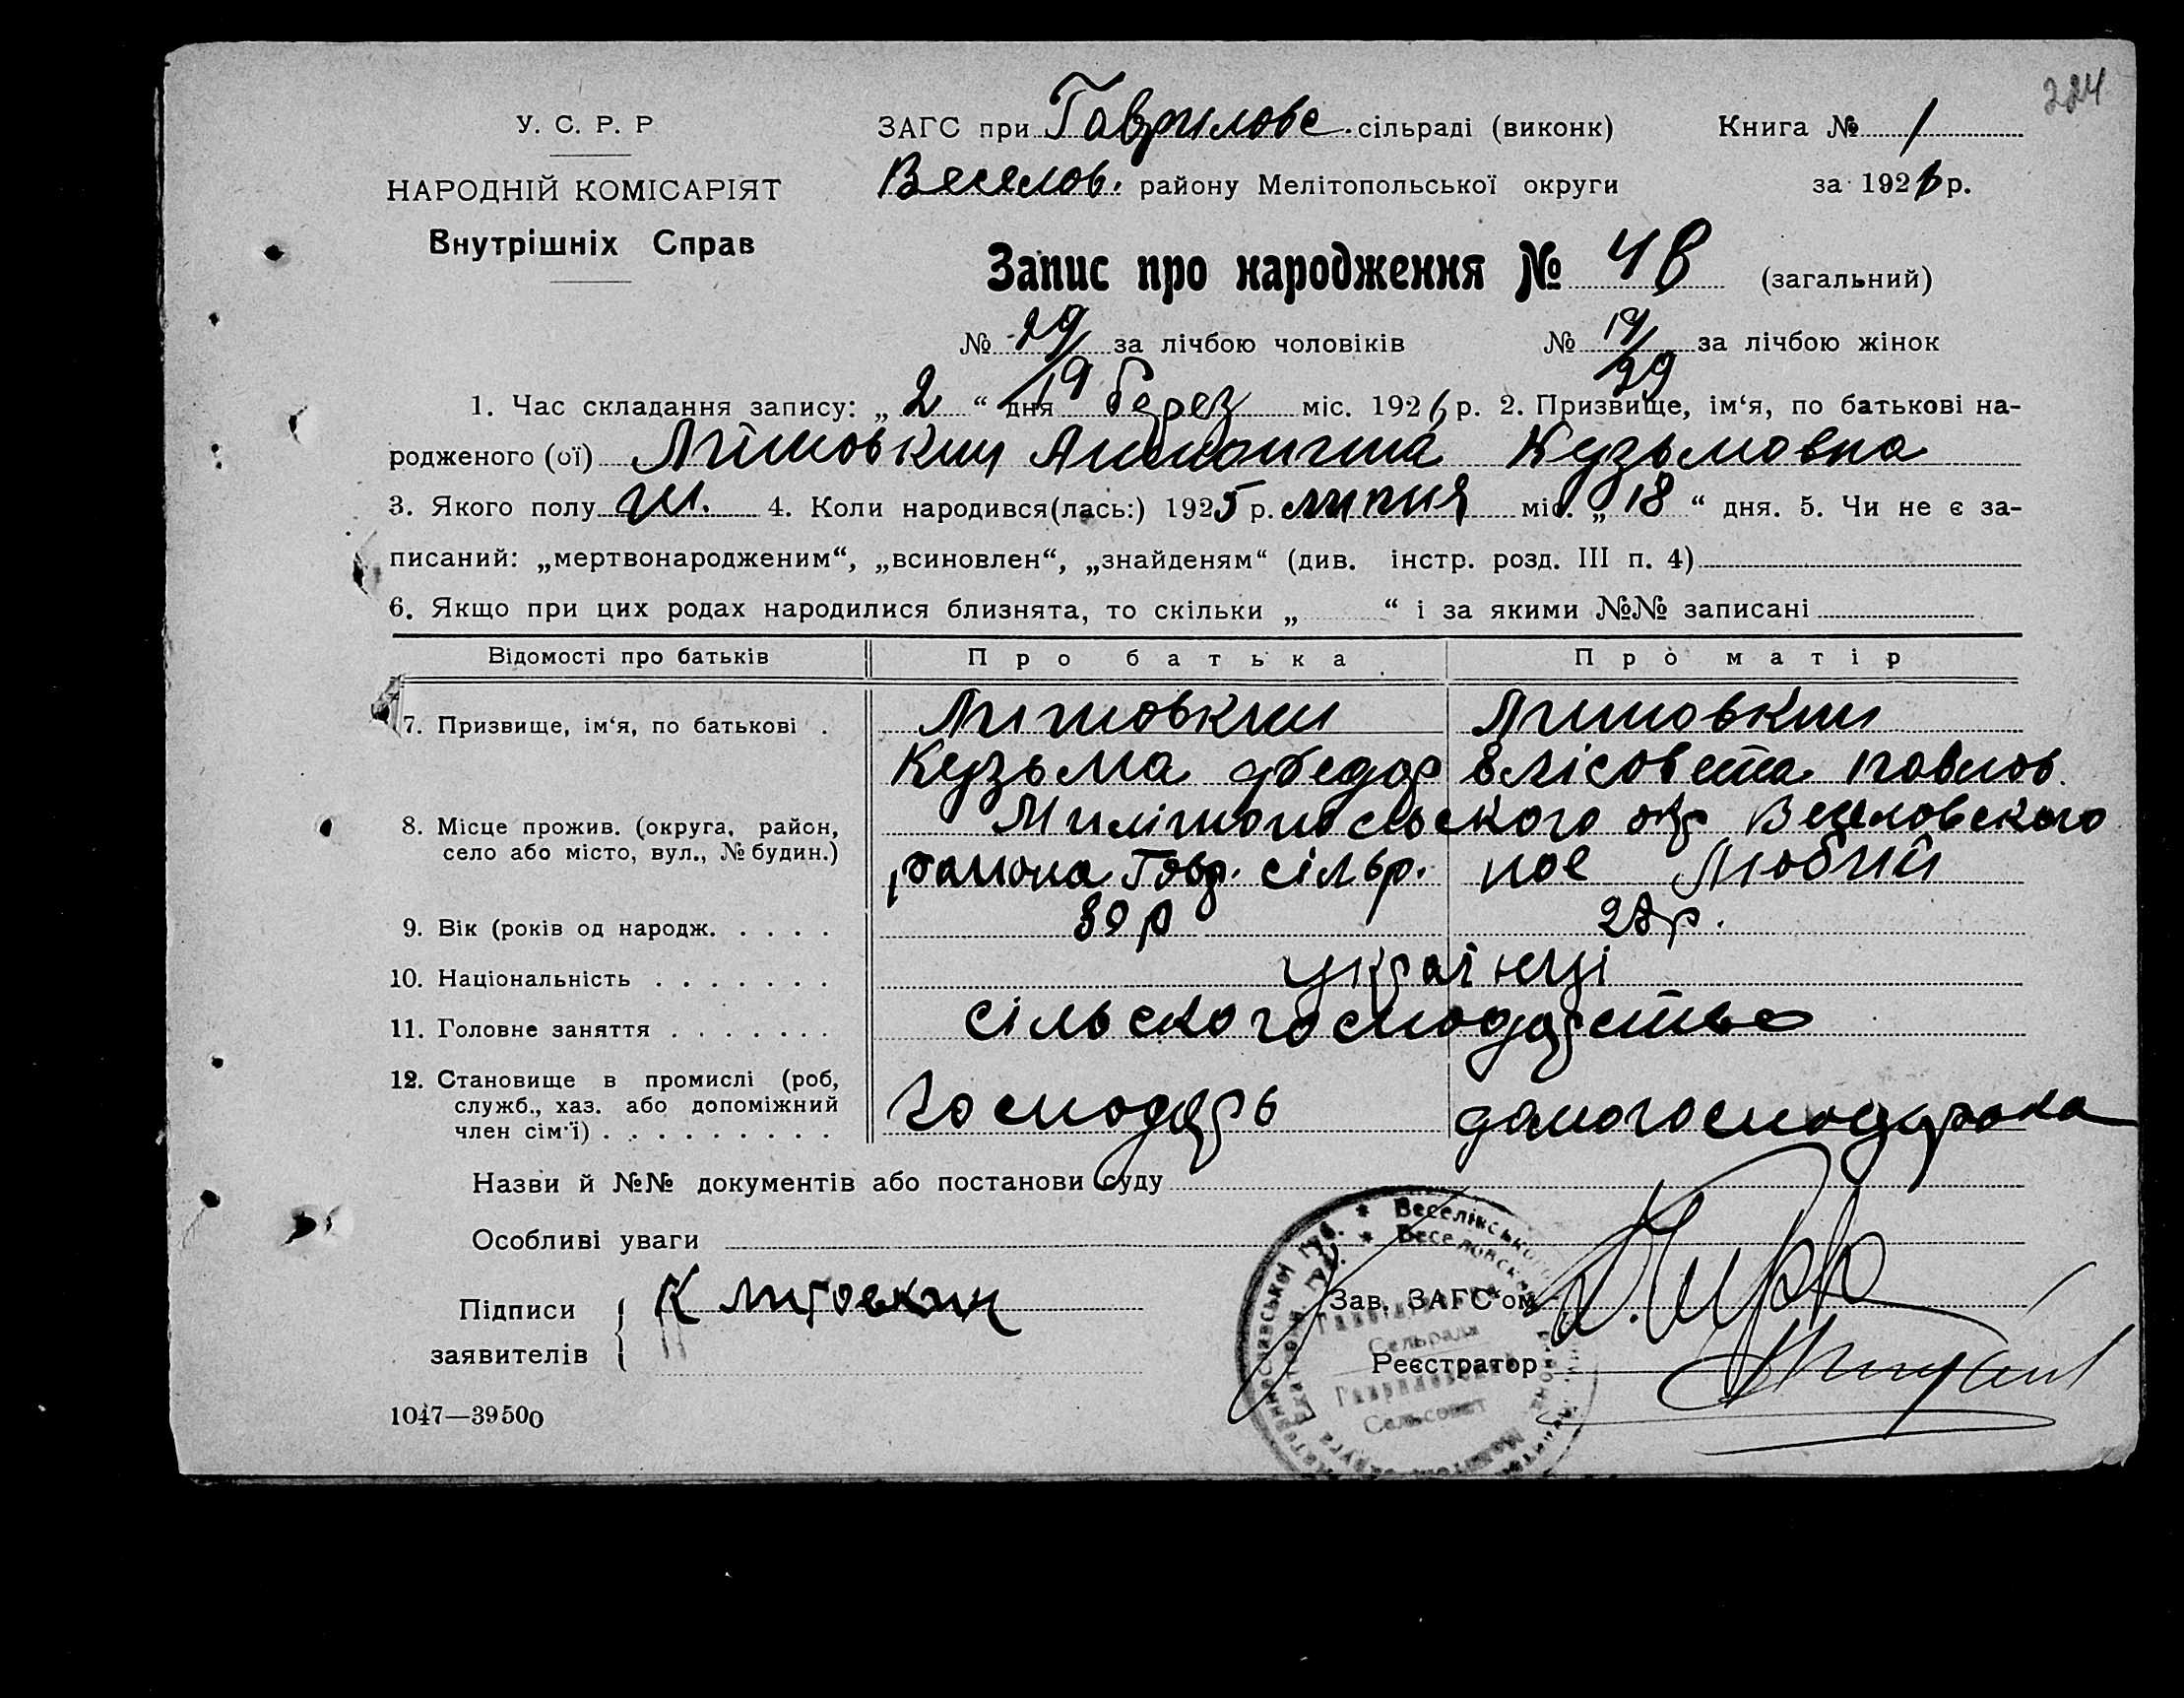 224
У. С. Р. Р
НАРОДНІЙ КОМІСАРІЯТ
Внутрішніх Справ
ЗАГС при Гаврилове. сільраді (виконк) Книга № 1
Веселов. району Мелітопольської округи за 1926 р.
Запис про народження № 48 (загальний)
№ 29/19 за лічбою чоловіків № 19/29 за лічбою жінок
1. Час складання запису: „ 2 “ дня берез міс. 1926 р. 2. Призвище, ім‘я, по батькові на-
родженого (ої) Літовкин Антонина Кузьмовна
3. Якого полу ж. 4. Коли народився(лась:) 1925 р. липня міс. „ 18 “ дня. 5. Чи не є за-
писаний: „мертвонародженим“, „всиновлен“, „знайденям“ (див. інстр. розд. III п. 4)
6. Якщо при цих родах народилися близнята, то скільки „ “ і за якими №№ записані
Відомості про батьків Про батька Про матір
7. Призвище, ім‘я, по батькові . Литовкин Литовкин
Кузьма Федор Елісовета павлов.
8. Місце прожив. (округа, район, село або місто, вул., № будин.) Милітопольского окр Веселовского
района Гавр. сільр. пос Любий
9. Вік (років од народж. . . . . 30 р 28 р.
10. Національність . . . . . . . українці
11. Головне заняття . . . . . . . сільскогосподарство
12. Становище в промислі (роб, служб., хаз. або допоміжний член сім‘ї) . . . . . . . . . Господарь домогосподарка
Назви й №№ документів або постанови суду
Особливі уваги
Підписи
заявителів
К Литовкин
Зав. ЗАГС‘ом
Реєстратор
Сельрада
Гавриловский
Сельсовет
1047—39500